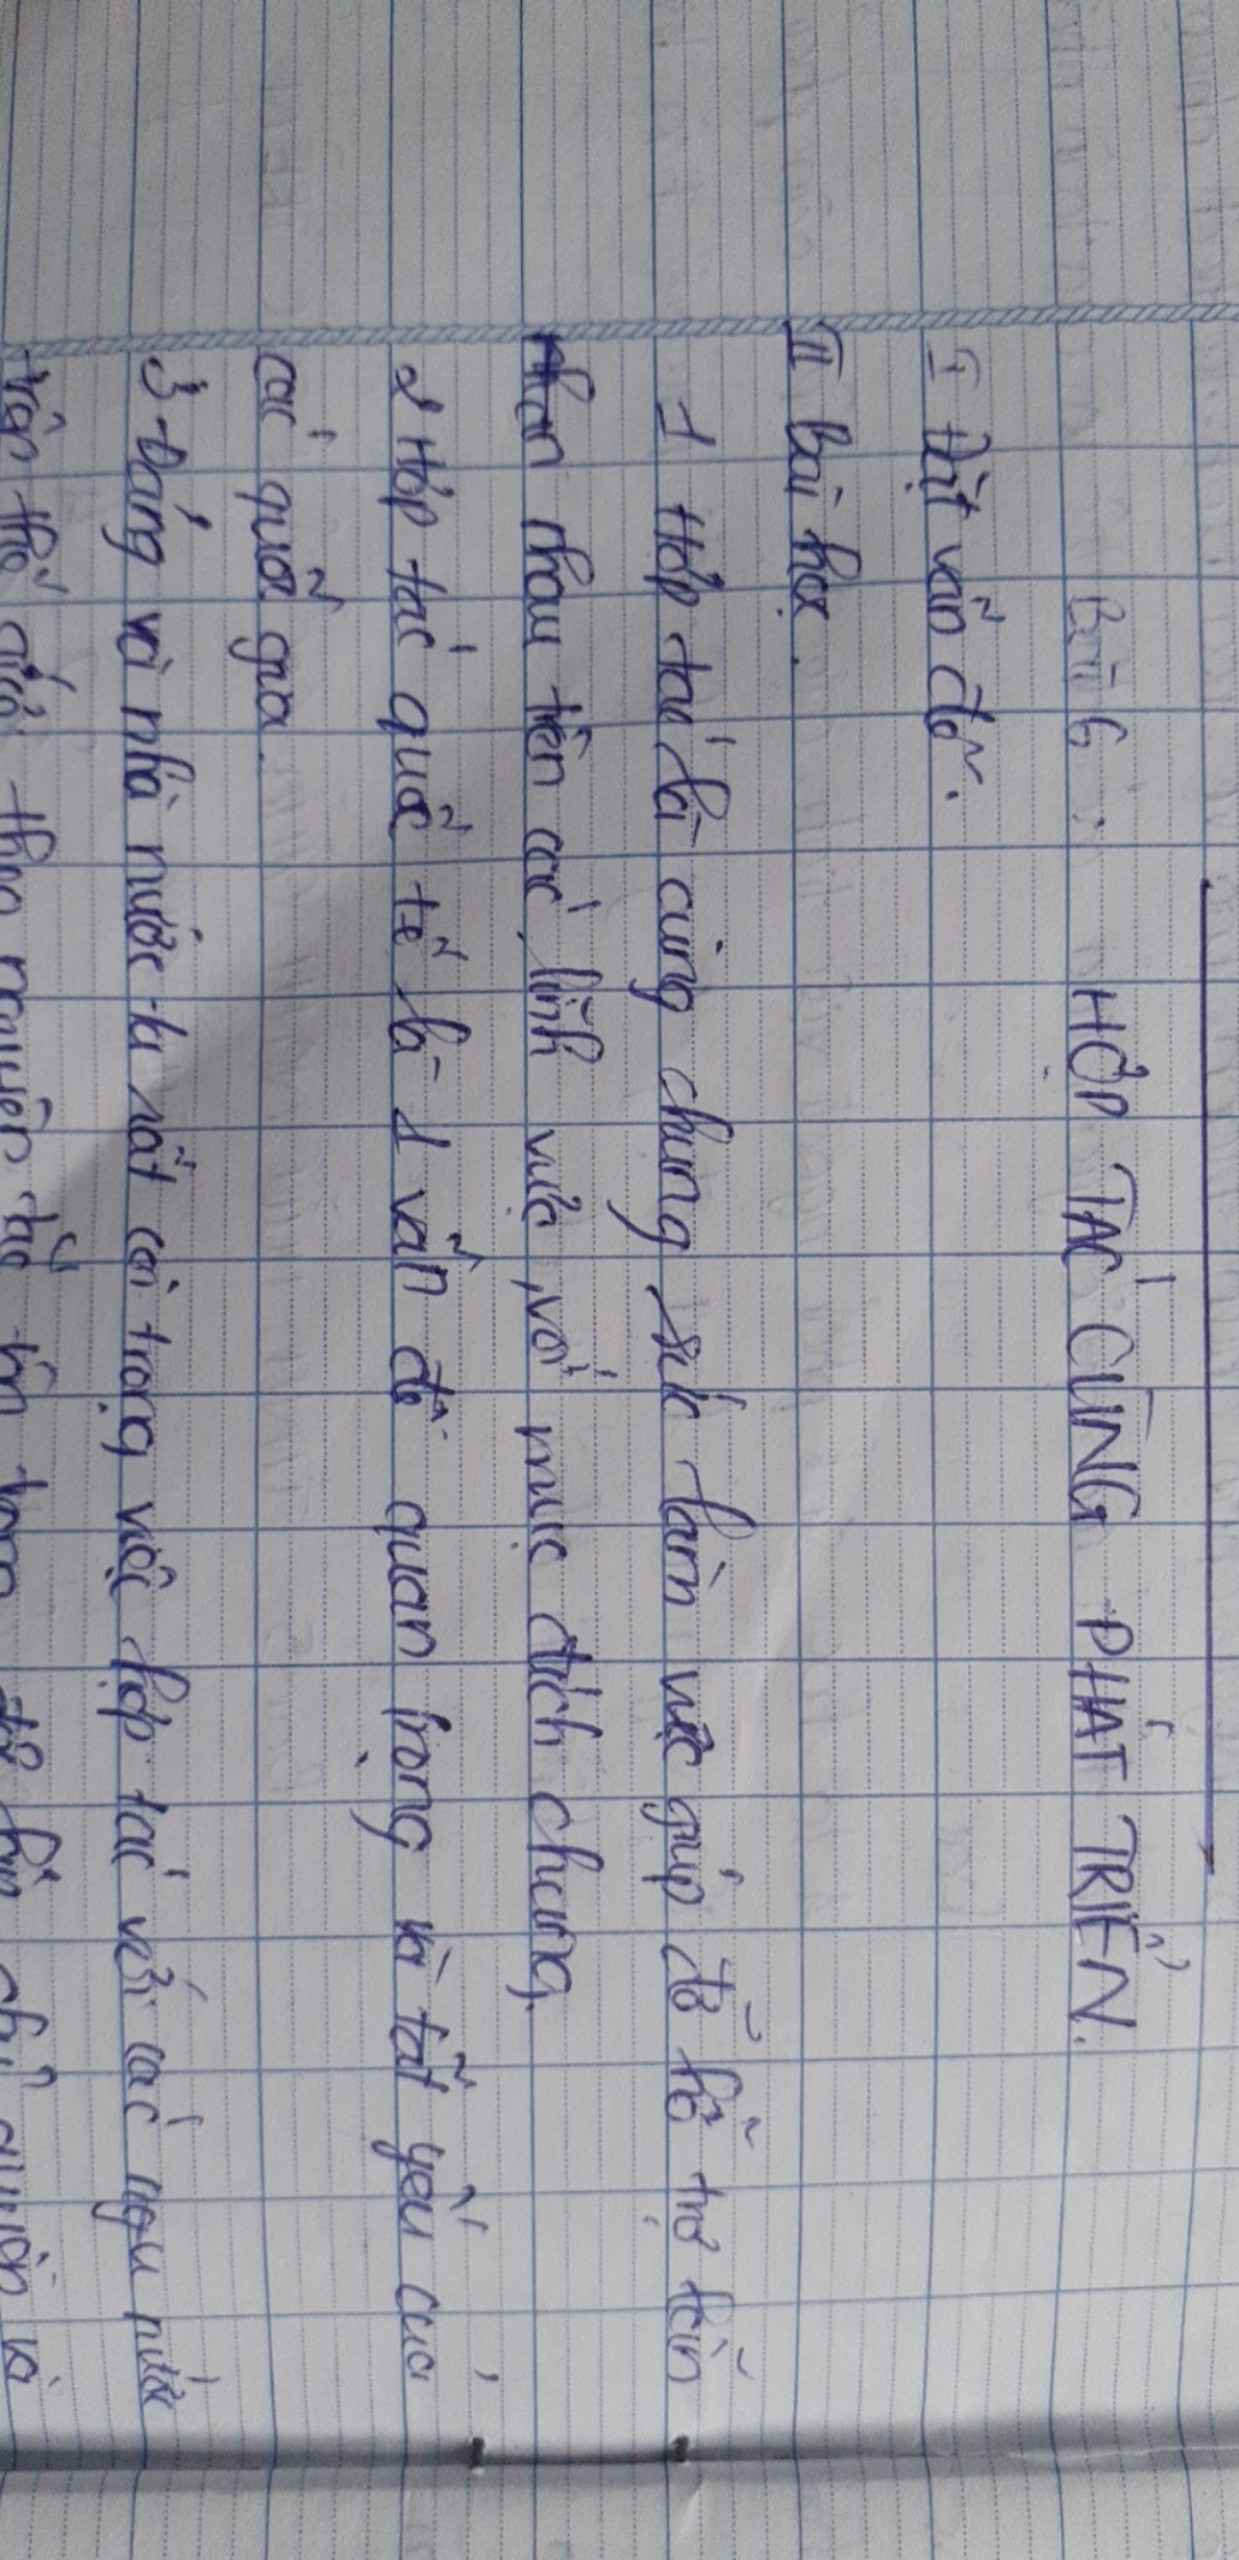 Bài 6: HỢP TÁC CÙNG PHÁT TRIỂN.
I Đặt vấn đề.
II bài học.
1 Hợp tác là cùng chung sức làm việc giúp đỡ hỗ trợ lẫn
nhau trên các lĩnh vực, với mục đích chung.
2 Hợp tác quốc tế là 1 vấn đề quan trọng và tất yếu của
các quốc gia.
3 Đảng và nhà nước ta rất coi trọng việc hợp tác với các nước
trên thế giới theo nguyên tắc tôn trọng chủ quyền và